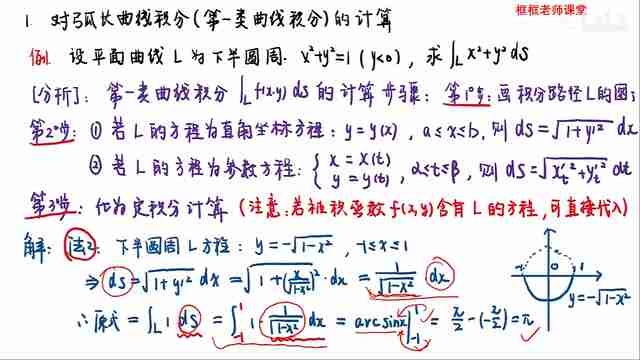 框框老师课堂
1. 对弧长曲线积分(第一类曲线积分)的计算
例. 设平面曲线 L 为下半圆周. x²+y²=1 (y<0), 求 ∫_L x²+y² ds
[分析]: 第一类曲线积分 ∫_L f(x,y) ds 的计算步骤: 第1步: 画积分路径L的图;
第2步: ① 若 L 的方程为直角坐标方程: y=y(x), a≤x≤b, 则 ds=√(1+y'²) dx
② 若 L 的方程为参数方程: { x=x(t) y=y(t), α≤t≤β, 则 ds=√(x'_t²+y'_t²) dt
第3步: 化为定积分计算 (注意: 若被积函数 f(x,y) 含有 L 的方程, 可直接代入)
解: 法2: 下半圆周 L 方程: y=-√(1-x²), -1≤x≤1
⇒ ds=√(1+y'²) dx=√(1+(x/√(1-x²))²)·dx=1/√(1-x²) dx
∴ 原式=∫_L 1 ds=∫_{-1}^{1} 1·1/√(1-x²) dx=arcsinx|_{-1}^{1}=π/2-(-π/2)=π
-1 0 1
y=-√(1-x²)